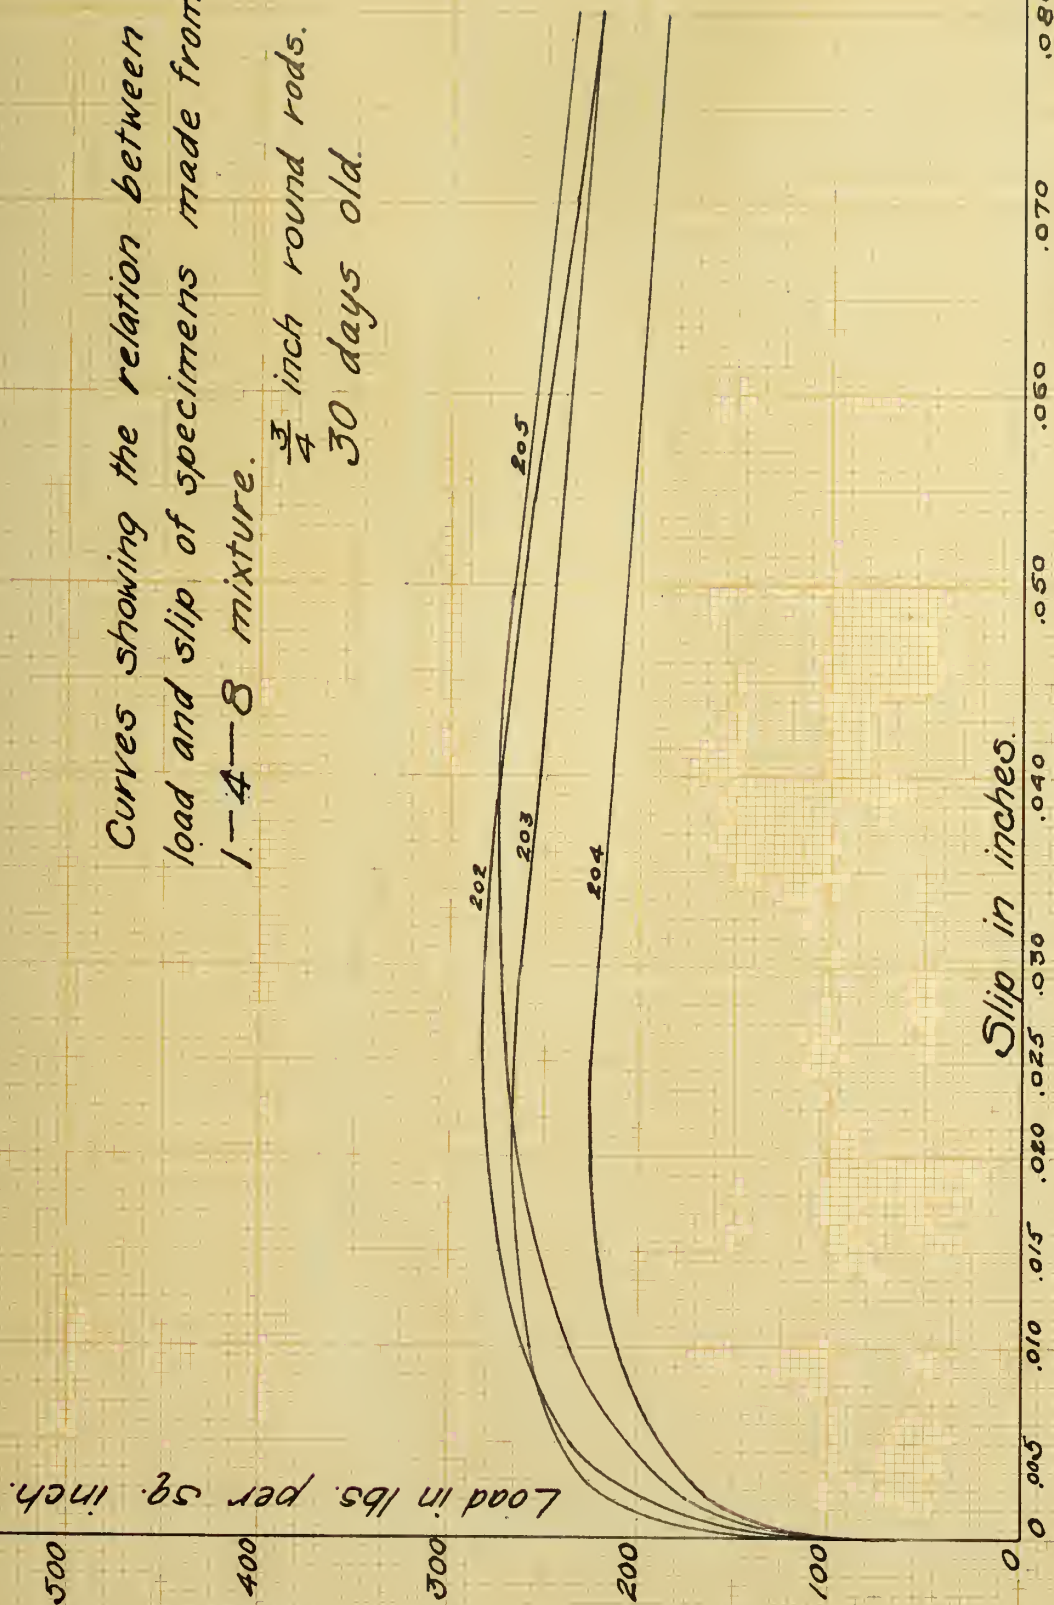 Curves showing the relation between
load and slip of specimens made from
1-4-8 mixture.
3/4 inch round rods.
30 days old.
Load in lbs. per sq. inch.
500
400
300
200
100
0
202
205
203
204
Slip in inches.
0 .005 .010 .015 .020 .025 .030 .040 .050 .060 .070